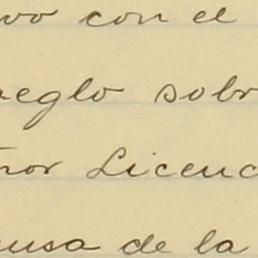 vo con el
reglo sobr
ñor Licenc
ensa de la